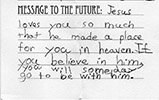 MESSAGE TO THE FUTURE: Jesus
loves you so much
that he made a place
for you in heaven. If
you believe in him,
you will someday
go to be with him.